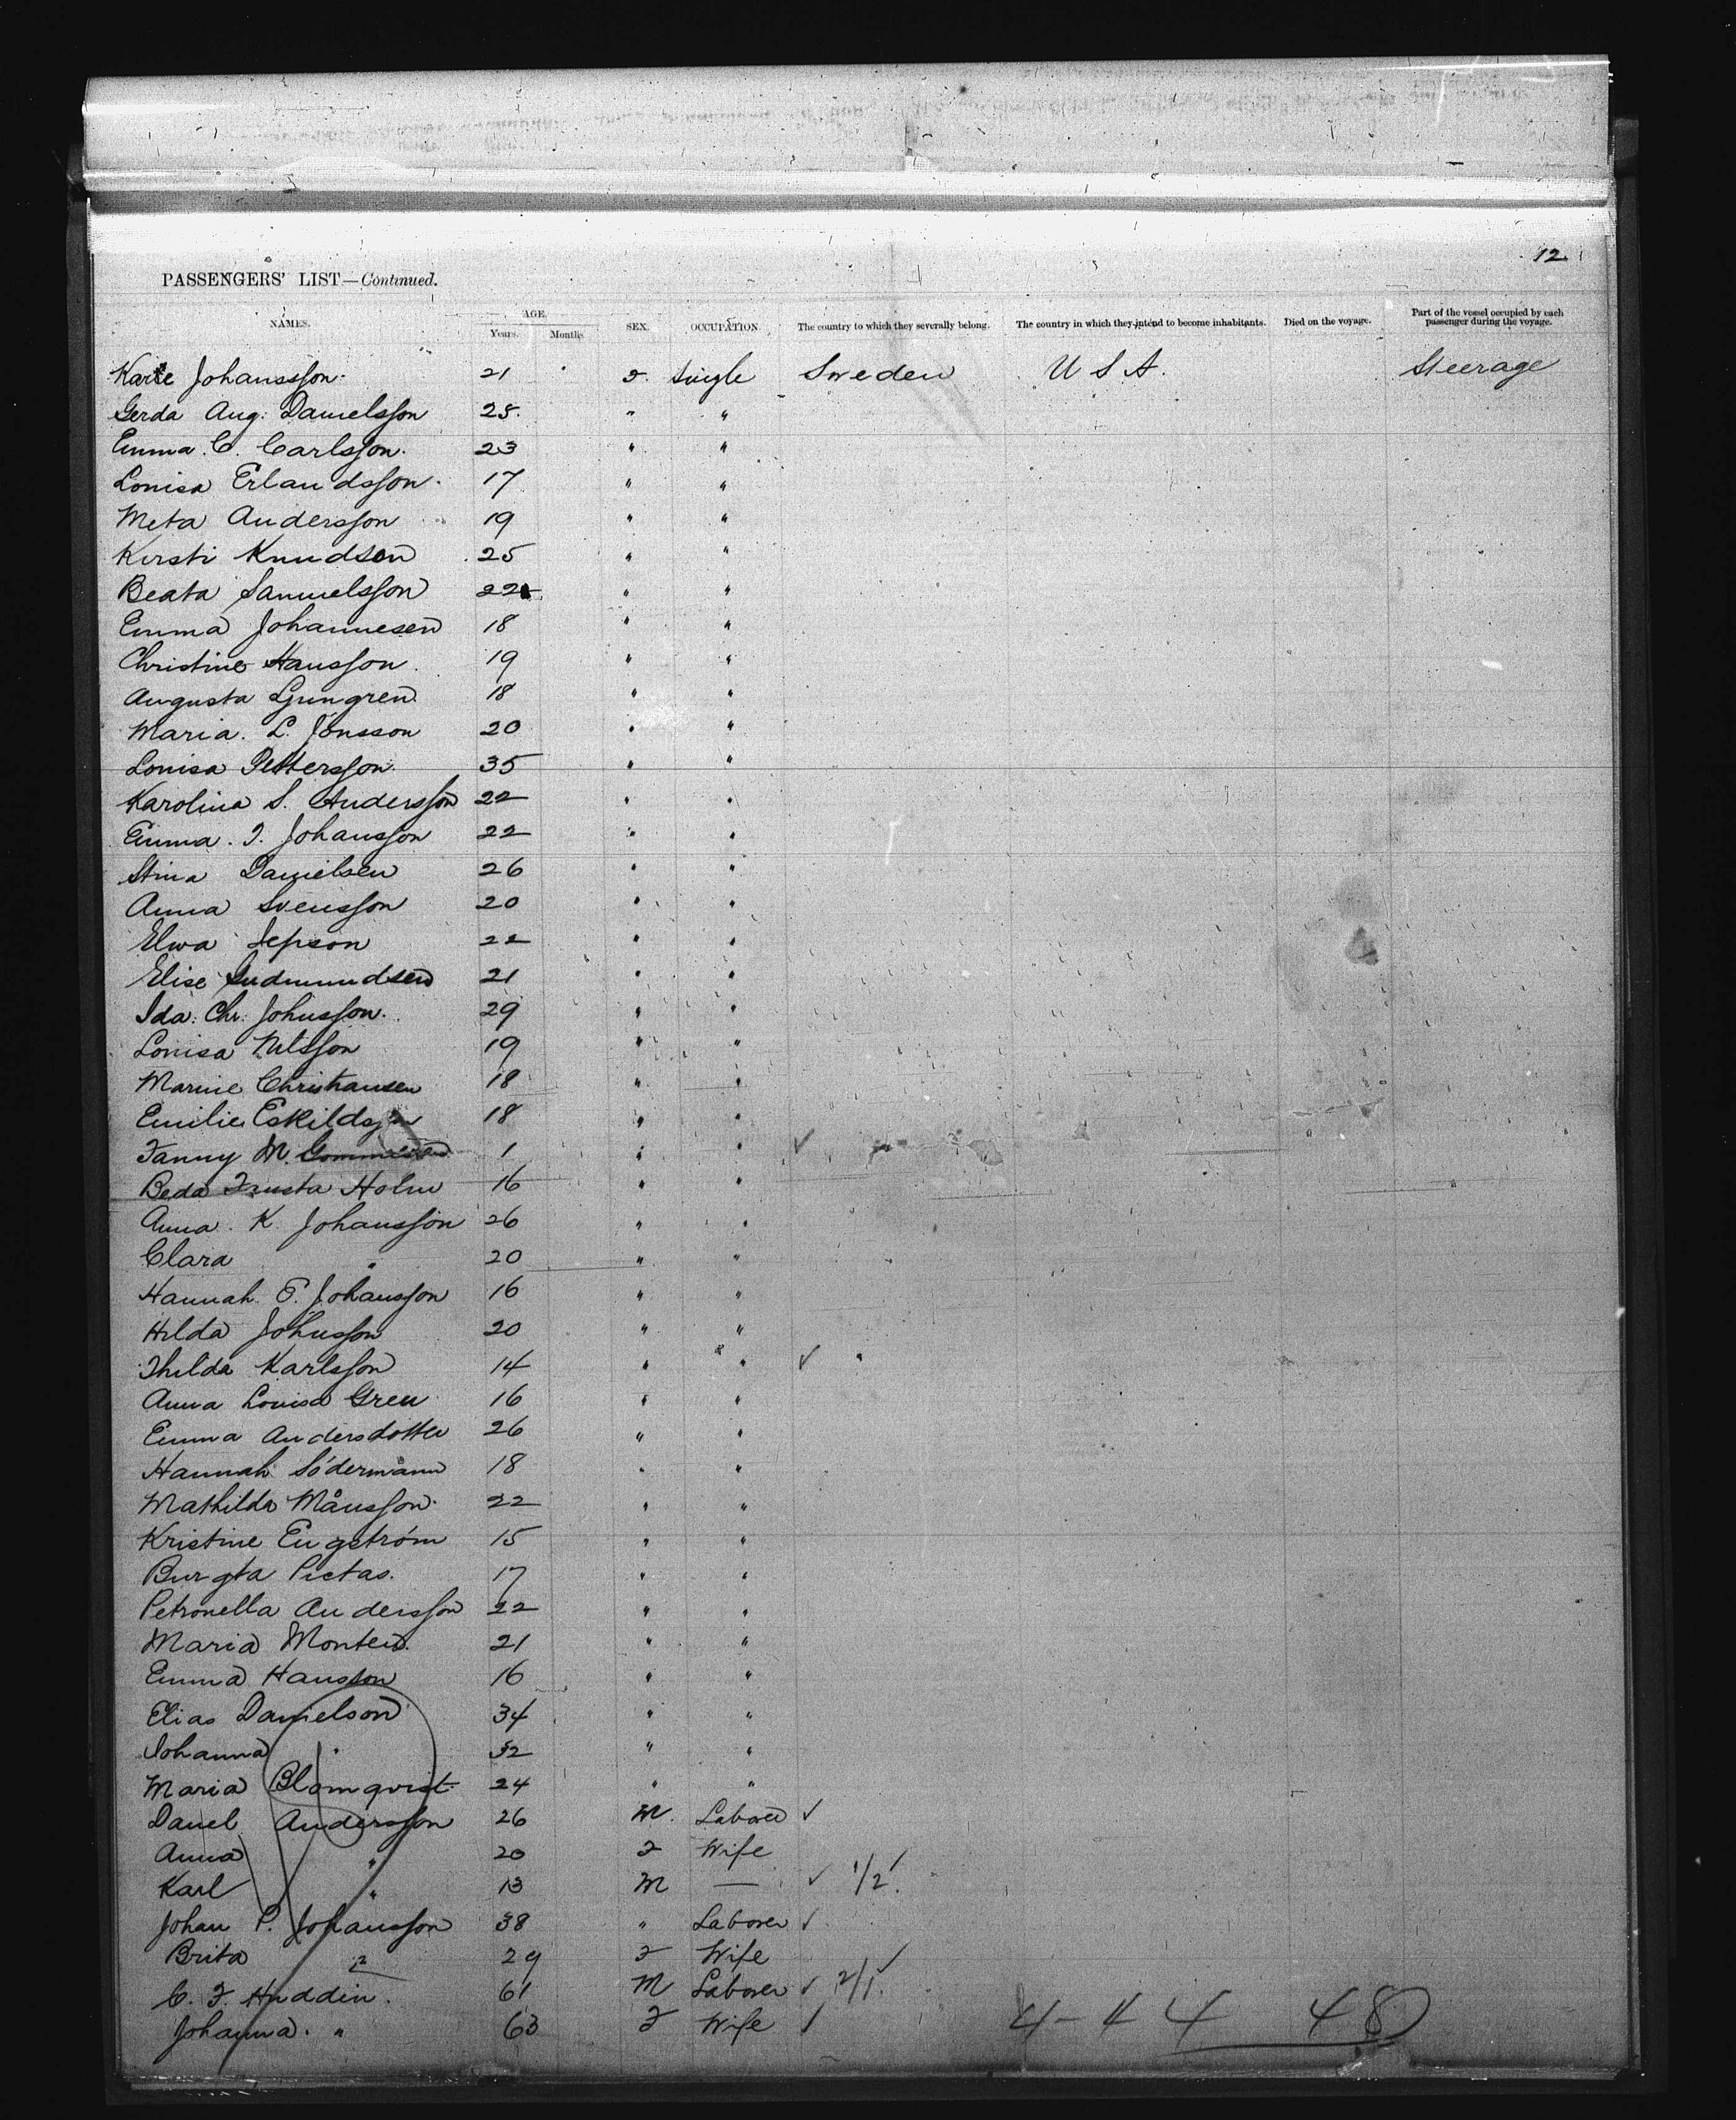 12
PASSENGERS' LIST—Continued.
NAMES. AGE. Years. Months. SEX. OCCUPATION. The country to which they severally belong. The country in which they intend to become inhabitants. Died on the voyage. Part of the vessel occupied by each passenger during the voyage.
Johansson 21 F. Single Sweden U S A. Steerage
Gerda Aug. Danielsson 28. " "
Emma C. Carlsson. 23 " "
Lonisa Erlandsson. 17 " "
Meta Andersson 19 " "
Kirsti Knudsen 25 " "
Beata Samuelsson 22 " "
Emma Johannesen 18 " "
Christine Hansson 19 " "
Augusta Ljungren 18 " "
Maria. L. Jönsson 20 " "
Lonisa Pettersson. 35 " "
Karolina S. Andersson 22 " "
Emma. J. Johansson 22 " "
Stina Danielsen 26 " "
Anna Svensson 20 " "
Elwa Jepson 22 " "
Elise Gudmundsen 21 " "
Ida. Chr. Johnsson. 29 " "
Lonisa Nilsson 19 " "
Christiansen 18 " "
Emilie Eskildsen 18 " "
Fanny M. 1 " "
Beda Holm 16 " "
Anna. K. Johansson 26 " "
Clara " 20 " "
Hannah. Johansson 16 " "
Hilda Johnsson 20 " "
Thilda Karlsson 14 " "
Anna Louisa Gren 16 " "
Emma Andersdotter 26 " "
Hannah Södermann 18 " "
Mathilda Månsson. 22 " "
Kristine Engström 15 " "
Pictas. 17 " "
Petronella Andersson 22 " "
Maria Monten. 21 " "
Emma Hansson 16 " "
Elias Danielson 34 " "
Johanna " 32 " "
Maria Blomqvist 24 " "
Daniel Andersson 26 M. Laborer
Anna " 20 F Wife
Karl " 13 M — 1/2.
Johan P. Johansson 38 " Laborer
Brita " 29 F Wife
C. F. Huddin. 61 M Laborer 2/1.
Johanna. " 63 F Wife
4-44 48